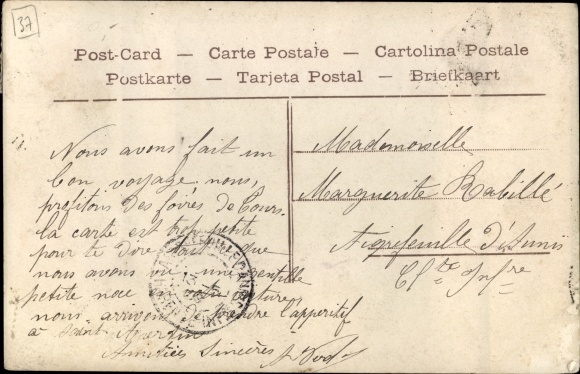 37
Post-Card — Carte Postale — Cartolina Postale
Postkarte — Tarjeta Postal — Briefkaart
Nous avons fait un
bon voyage, nous
profitons des foires de Tours.
la carte est trop petite
pour te dire tout que
nous avons vu une gentille
petite noce voiture,
nous arrivons de prendre l'apperitif
a Saint
Amitiées Sincères
Mademoiselle
Marguerite Rabillé
Aigrefeuille d'Aunis
Cte Infre